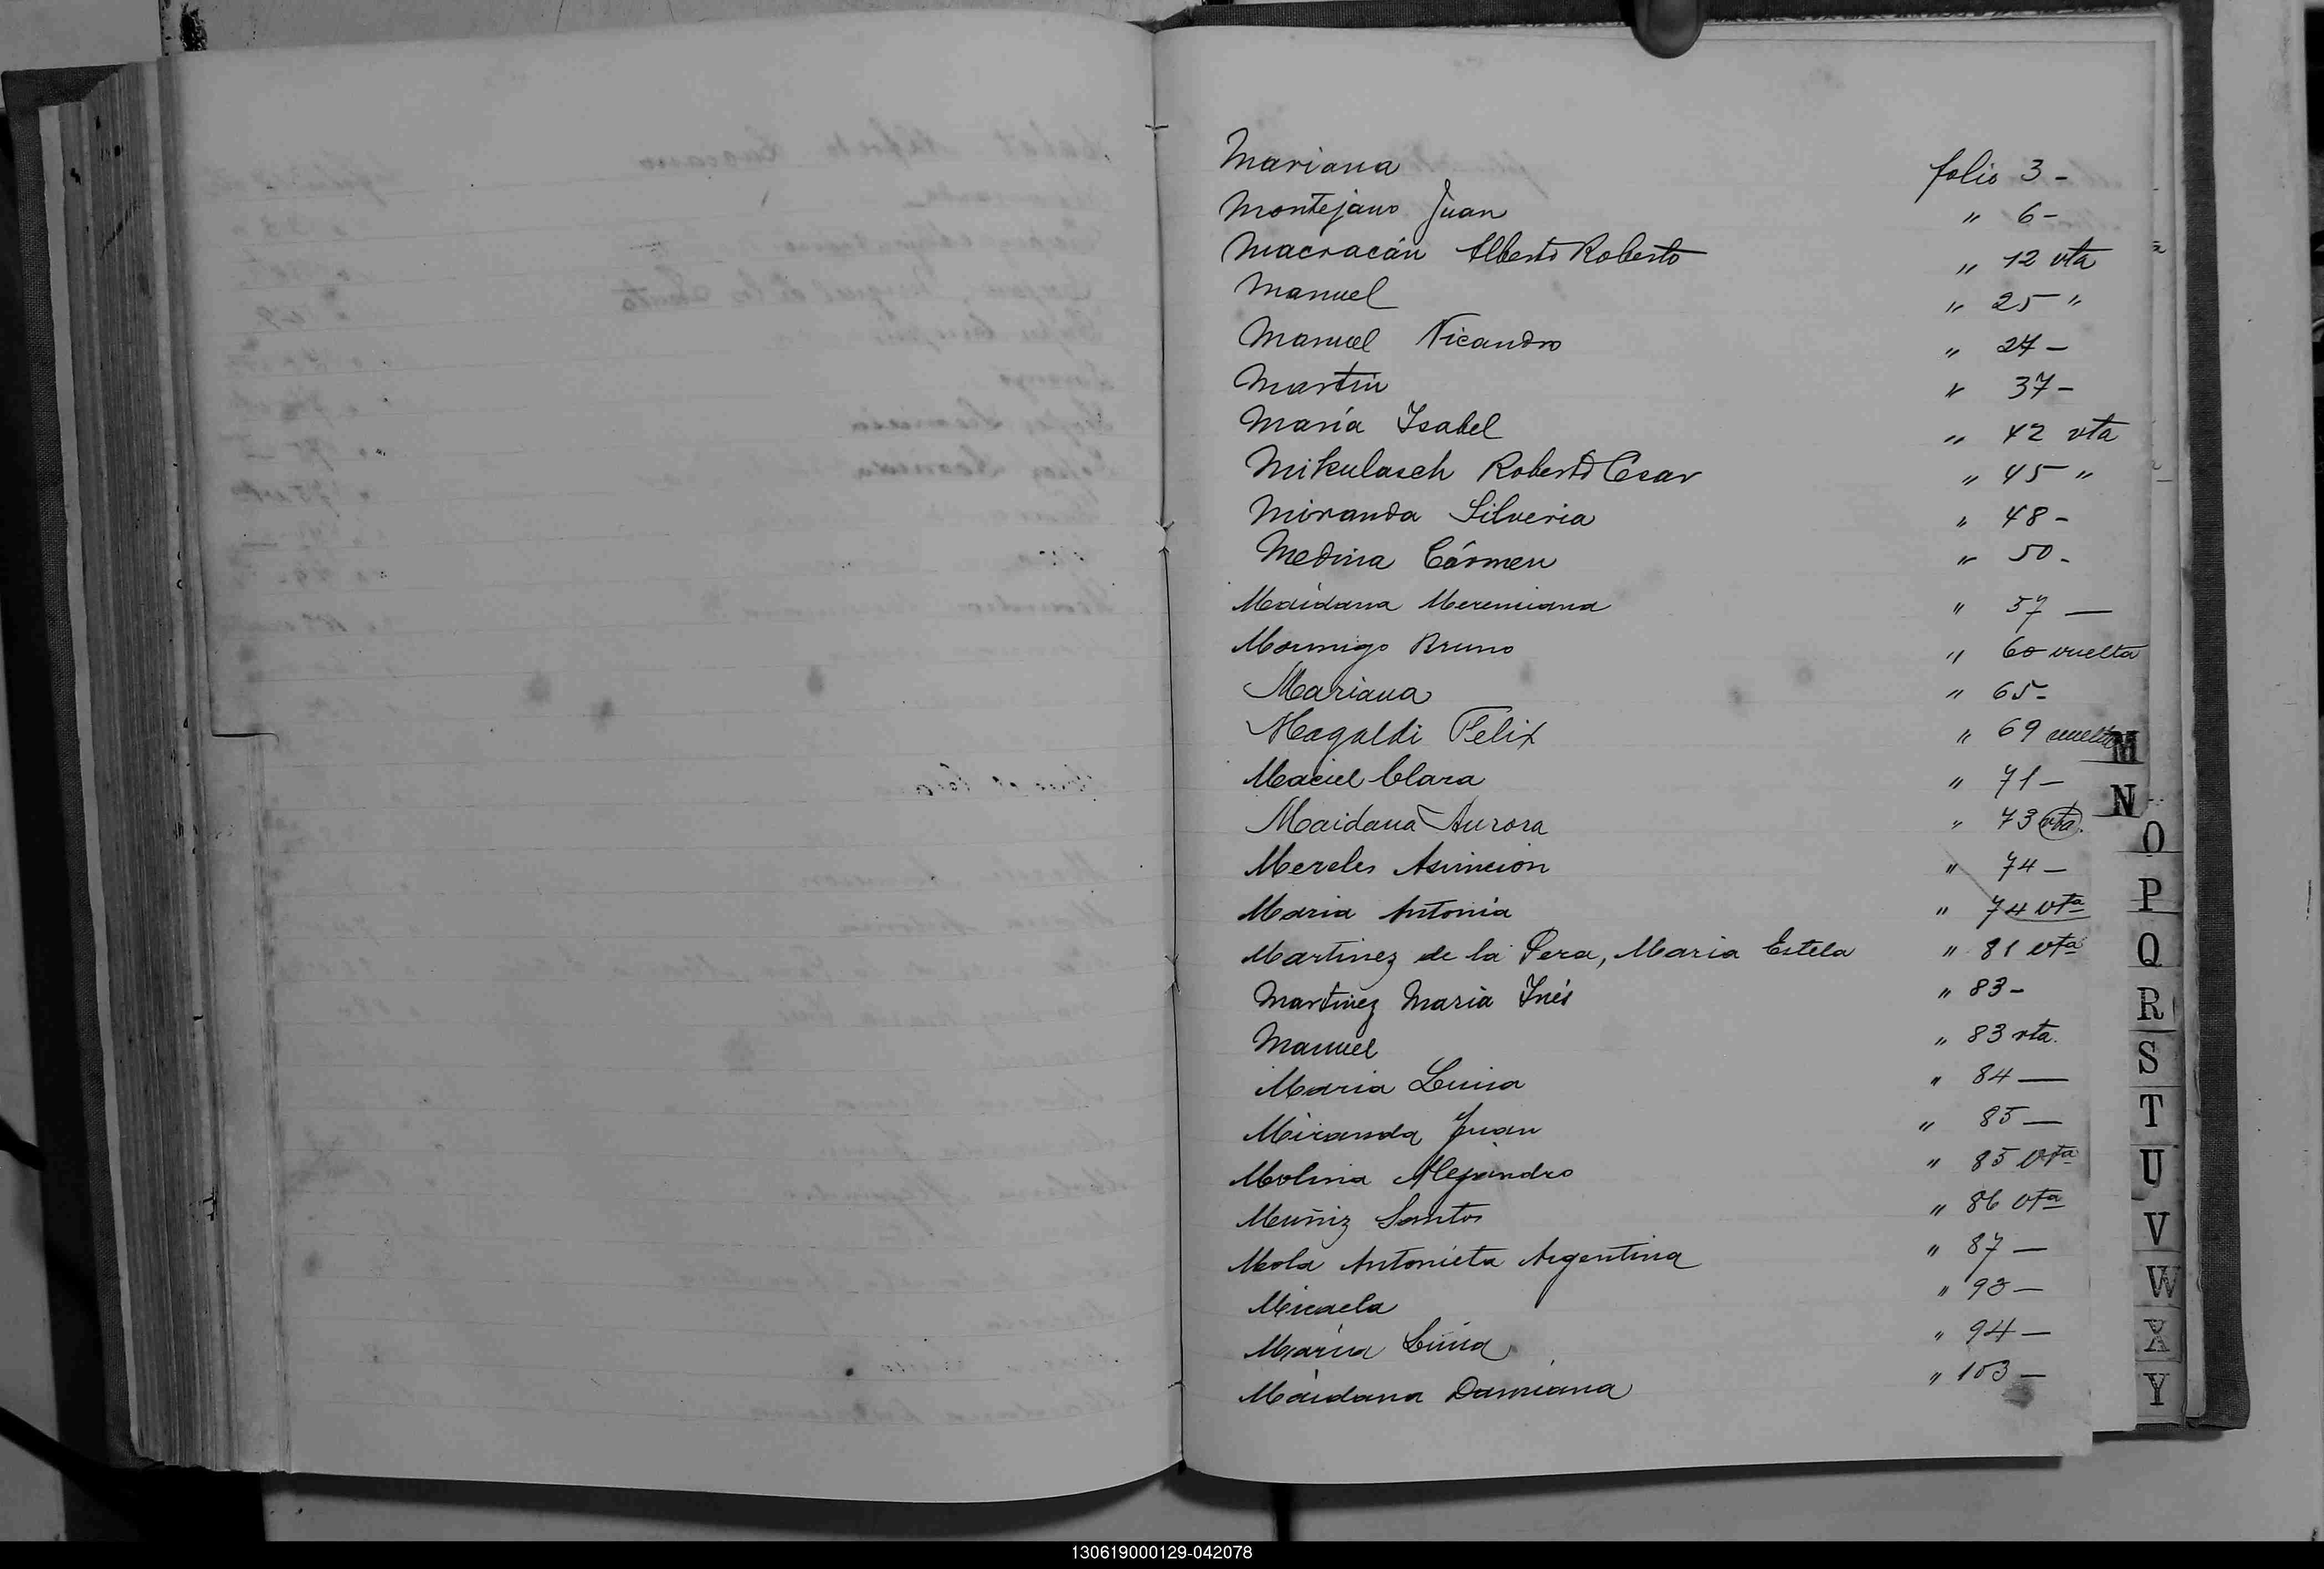 Mariana folio 3 -
Montejano Juan " 6 -
Macracán Alberto Roberto " 12 vta
Manuel " 25 "
Manuel Nicandro " 27 -
Martín " 37 -
María Isabel " 42 vta
Mikulasch Roberto Cesar " 45 "
Miranda Silveria " 48 -
Medina Cármen " 50 -
Maidana Meremiana " 57 —
Mormigo Bruno " 60 vuelta
Mariana " 65 -
Magaldi Felix " 69 vuelta
Maciel Clara " 71 -
Maidana Aurora " 73 vta.
Mereles Asunción " 74 —
Maria Antonia " 74 vta
Martinez de la Pera, Maria Estela " 81 vta
Martinez Maria Inés " 83 -
Manuel " 83 vta.
Maria Luisa " 84 —
Miranda Juan " 85 —
Molina Alejandro " 85 vta
Muñiz Santos " 86 vta
Mola Antonieta Argentina " 87 —
Micaela " 93 —
Maria Luisa " 94 —
Maidana Damiana " 103 —
M
N
O
P
Q
R
S
T
U
V
W
X
Y
130619000129-042078